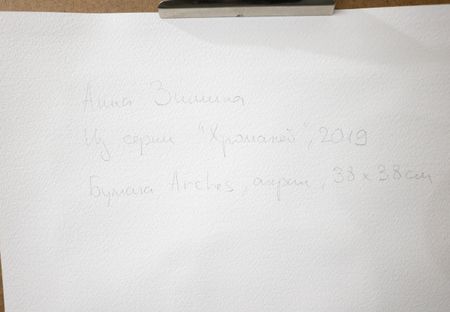 Анна Зимина
Из серии "Хромакей", 2019
Бумага Arches, акрил, 38 x 38 см